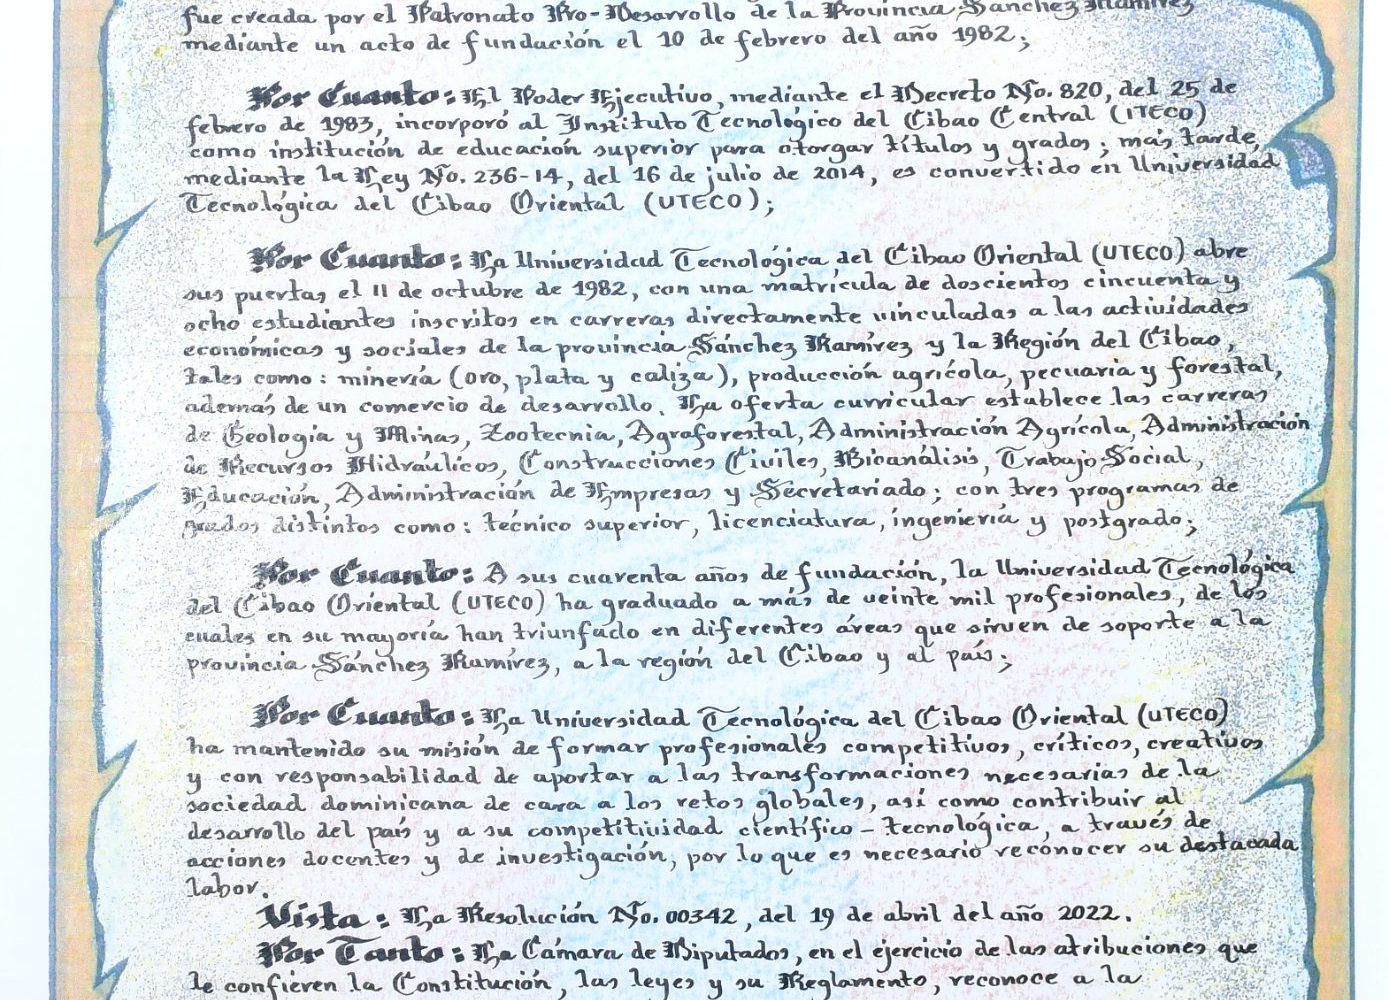 fue creada por el Patronato Pro-Desarrollo de la Provincia Sánchez Ramírez
mediante un acto de fundación el 10 de febrero del año 1982;
Por Cuanto: El Poder Ejecutivo, mediante el Decreto No. 820, del 25 de
febrero de 1983, incorporó al Instituto Tecnológico del Cibao Central (ITECO)
como institución de educación superior para otorgar títulos y grados; más tarde,
mediante la Ley No. 236-14, del 16 de julio de 2014, es convertido en Universidad
Tecnológica del Cibao Oriental (UTECO);
Por Cuanto: La Universidad Tecnológica del Cibao Oriental (UTECO) abre
sus puertas el 11 de octubre de 1982, con una matrícula de doscientos cincuenta y
ocho estudiantes inscritos en carreras directamente vinculadas a las actividades
económicas y sociales de la provincia Sánchez Ramírez y la Región del Cibao,
tales como: minería (oro, plata y caliza), producción agrícola, pecuaria y forestal,
además de un comercio de desarrollo. La oferta curricular establece las carreras
de Geología y Minas, Zootecnia, Agroforestal, Administración Agrícola, Administración
de Recursos Hidráulicos, Construcciones Civiles, Bioanálisis, Trabajo Social,
Educación, Administración de Empresas y Secretariado; con tres programas de
grados distintos como: técnico superior, licenciatura, ingeniería y postgrado;
Por Cuanto: A sus cuarenta años de fundación, la Universidad Tecnológica
del Cibao Oriental (UTECO) ha graduado a más de veinte mil profesionales, de los
cuales en su mayoría han triunfado en diferentes áreas que sirven de soporte a la
provincia Sánchez Ramírez, a la región del Cibao y al país;
Por Cuanto: La Universidad Tecnológica del Cibao Oriental (UTECO)
ha mantenido su misión de formar profesionales competitivos, críticos, creativos
y con responsabilidad de aportar a las transformaciones necesarias de la
sociedad dominicana de cara a los retos globales, así como contribuir al
desarrollo del país y a su competitividad científico - tecnológica, a través de
acciones docentes y de investigación, por lo que es necesario reconocer su destacada
labor.
Vista: La Resolución No. 00342, del 19 de abril del año 2022.
Por Tanto: La Cámara de Diputados, en el ejercicio de las atribuciones que
le confieren la Constitución, las leyes y su Reglamento, reconoce a la